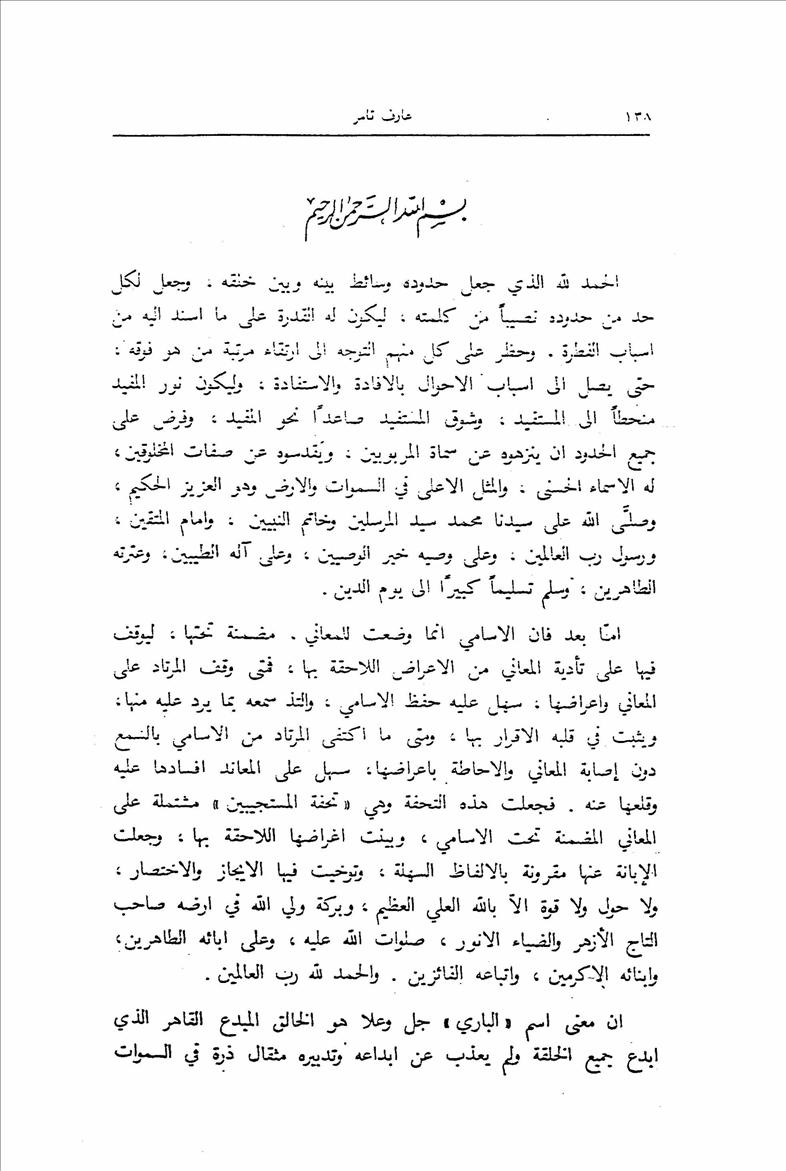 ١٣٨ عارف تامر
بسم الله الرحمن الرحيم
الحمد لله الذي جعل حدوده وسائط بينه وبين خلقه ، وجعل لكل
حد من حدوده نصيباً من كلمته ، ليكون له القدرة على ما اسند اليه من
اسباب الفطرة . وحظر على كل منهم التوجه الى ارتقاء مرتبة من هو فوقه ،
حتى يصل الى اسباب الاحوال بالافادة والاستفادة ، وليكون نور المفيد
منحطاً الى المستفيد ، وشوق المستفيد صاعداً نحو المفيد ، وفرض على
جميع الحدود ان ينزهوه عن سماة المربوبين ، ويقدسوه عن صفات المخلوقين ،
له الاسماء الحسنى ، والمثل الاعلى في السموات والارض وهو العزيز الحكيم ،
وصلَّى الله على سيدنا محمد سيد المرسلين وخاتم النبيين ، وامام المتقين ،
ورسول رب العالمين ، وعلى وصيه خير الوصيين ، وعلى آله الطيبين ، وعترته
الطاهرين ، وسلم تسليماً كبيراً الى يوم الدين .
امّا بعد فان الاسامي انما وضعت للمعاني . مضمنة تحتها ، ليوقف
فيها على تأدية المعاني من الاعراض اللاحقة بها ، فمتى وقف المرتاد على
المعاني واعراضها ، سهل عليه حفظ الاسامي ، والتذ سمعه بما يرد عليه منها ،
ويثبت في قلبه الاقرار بها ، ومتى ما اكتفى المرتاد من الاسامي بالسمع
دون إصابة المعاني والاحاطة باعراضها ، سهل على المعاند افسادها عليه
وقلعها عنه . فجعلت هذه التحفة وهي «تحفة المستجيبين» مشتملة على
المعاني المضمنة تحت الاسامي ، وبينت اغراضها اللاحقة بها ، وجعلت
الإبانة عنها مقرونة بالالفاظ السهلة ، وتوخيت فيها الايجاز والاختصار ،
ولا حول ولا قوة الاّ بالله العلي العظيم ، وبركة ولي الله في ارضه صاحب
التاج الأزهر والضياء الانور ، صلوات الله عليه ، وعلى ابائه الطاهرين ،
وابنائه الاكرمين ، واتباعه الفائزين . والحمد لله رب العالمين .
ان معنى اسم «الباري» جل وعلا هو الخالق المبدع القاهر الذي
ابدع جميع الخلقة ولم يعذب عن ابداعه وتدبيره مثقال ذرة في السموات